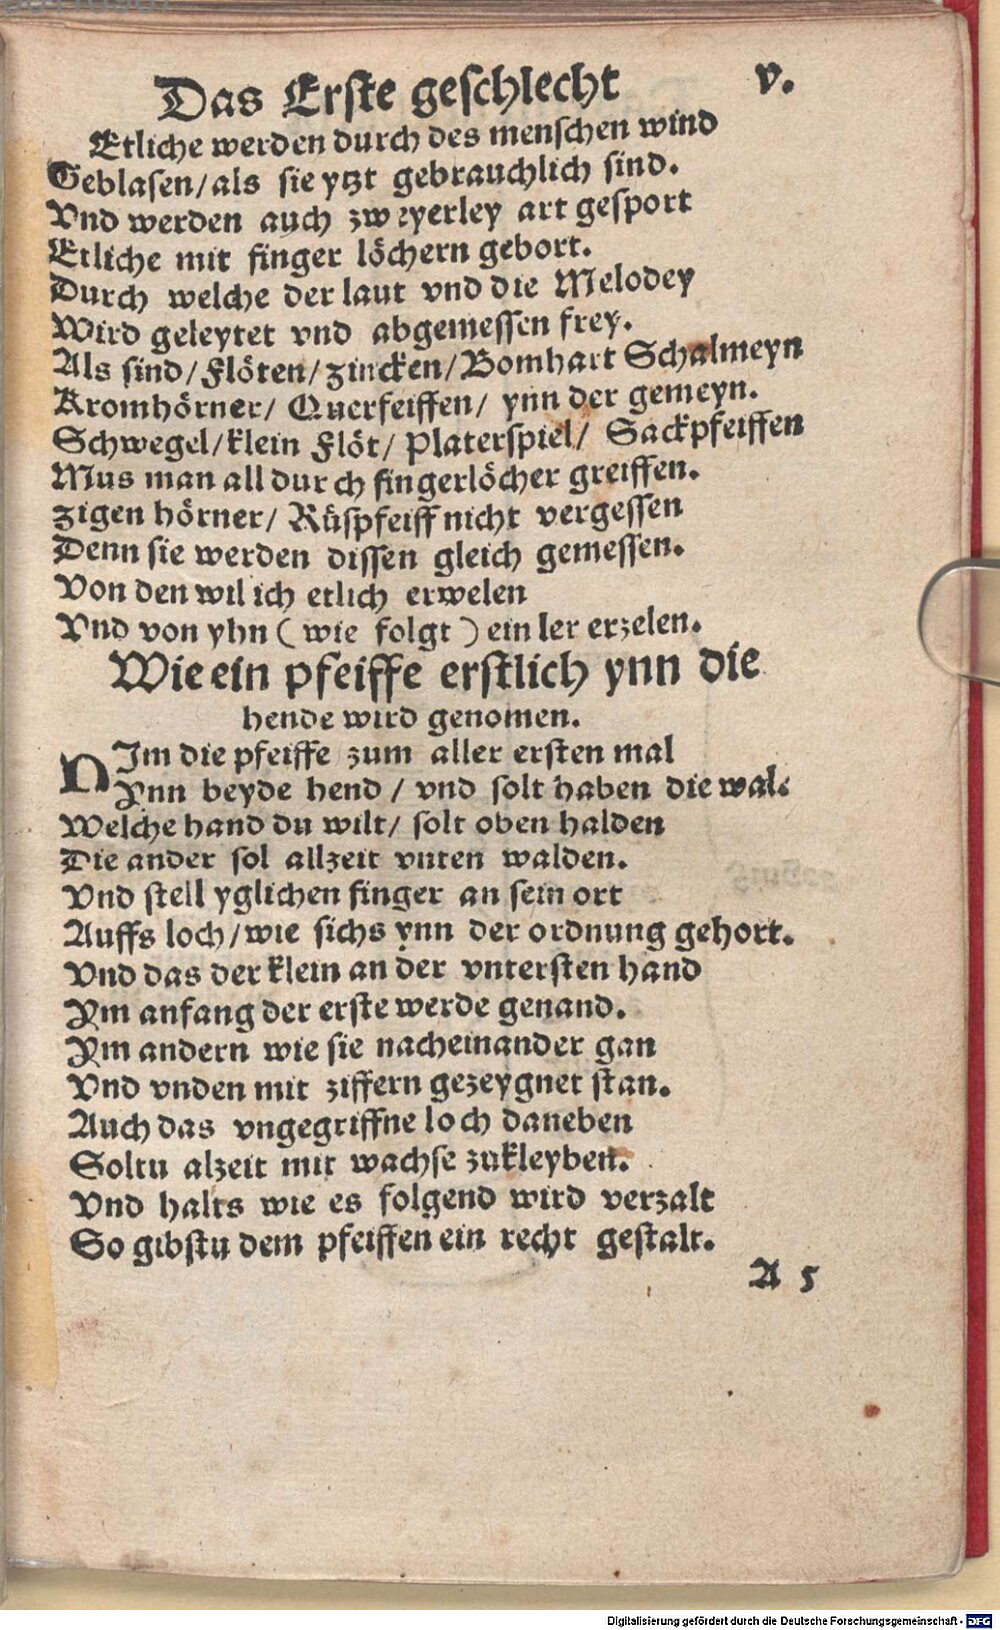 Das Erste geschlecht v.
Etliche werden durch des menschen wind
Geblasen/als sie ytzt gebrauchlich sind.
Vnd werden auch zweyerley art gesport
Etliche mit finger löchern gebort.
Durch welche der laut vnd die Melodey
Wird geleytet vnd abgemessen frey.
Als sind/Flöten/zincken/Bomhart Schalmeyn
Kromhörner/ Querfeiffen/ ynn der gemeyn.
Schwegel/klein Flöt/ Platerspiel/ Sackpfeiffen
Mus man all durch fingerlöcher greiffen.
zigen hörner/ Rüspfeiff nicht vergessen
Denn sie werden dissen gleich gemessen.
Von den wil ich etlich erwelen
Vnd von yhn ( wie folgt ) ein ler erzelen.
Wie ein pfeiffe erstlich ynn die
hende wird genomen.
NIm die pfeiffe zum aller ersten mal
Ynn beyde hend / vnd solt haben die wal.
Welche hand du wilt/ solt oben halden
Die ander sol allzeit vnten walden.
Vnd stell yglichen finger an sein ort
Auffs loch/wie sichs ynn der ordnung gehort.
Vnd das der klein an der vntersten hand
Ym anfang der erste werde genand.
Ym andern wie sie nacheinander gan
Vnd vnden mit ziffern gezeygnet stan.
Auch das vngegriffne loch daneben
Soltu alzeit mit wachse zukleyben.
Vnd halts wie es folgend wird verzalt
So gibstu dem pfeiffen ein recht gestalt.
A 5
Digitalisierung gefördert durch die Deutsche Forschungsgemeinschaft - DFG